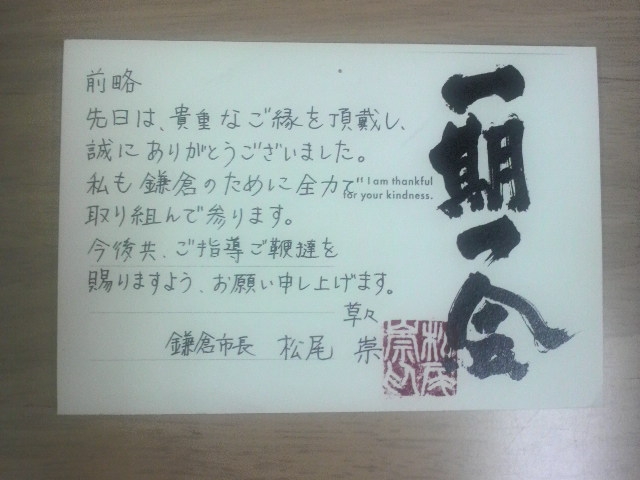 前略
先日は、貴重なご縁を頂戴し、
誠にありがとうございました。
私も鎌倉のために全力で
取り組んで参ります。
今後共、ご指導ご鞭撻を
賜りますよう、お願い申し上げます。
草々
鎌倉市長 松尾 崇
I am thankful
for your kindness.
一期一会